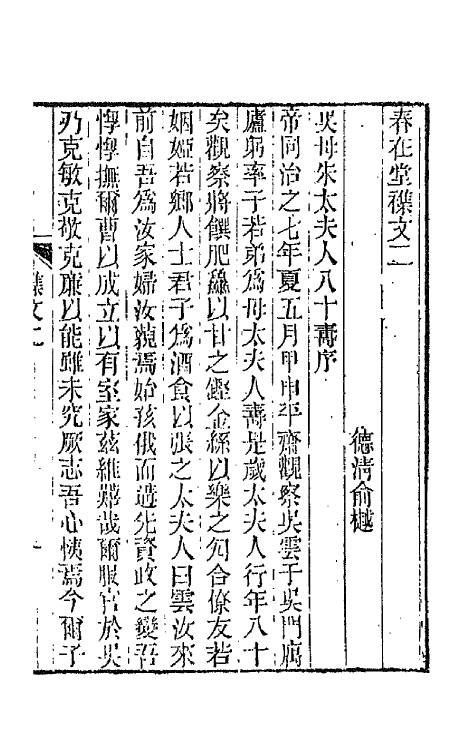 春在堂襍文二
德清俞樾
吳母朱太夫人八十壽序
帝同治之七年夏五月甲申平齋觀察吳雲于吳門寓
廬躬率子若弟爲母太夫人壽是歲太夫人行年八十
矣觀察將饌肥鱻以甘之鏗金絲以樂之匃合僚友若
姻婭若鄉人士君子爲酒食以張之太夫人曰雲汝來
前自吾爲汝家婦汝藐焉始孩俄而遘先資政之變吾
惸惸撫爾曹以成立以有室家茲維艱哉爾服官於吳
乃克敏克敬克廉以能雖未究厥志吾心悏焉今爾子
襍文二
一